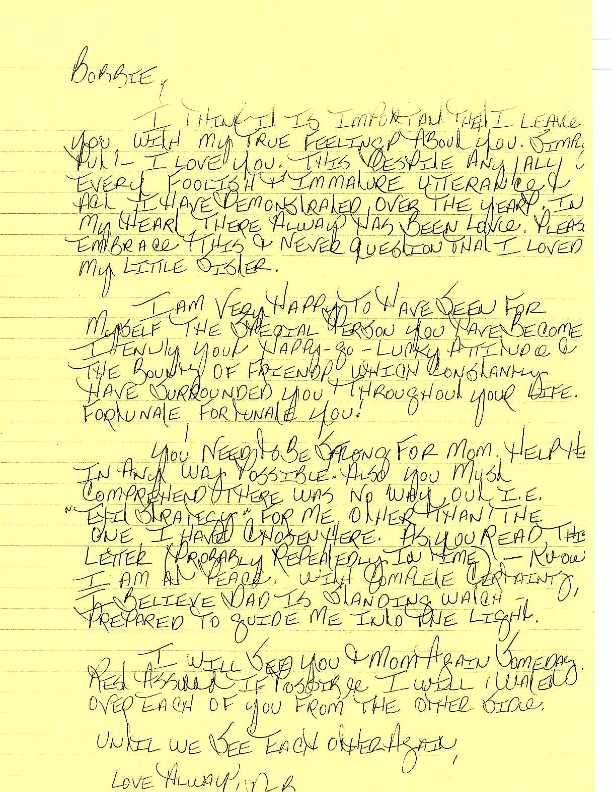 BOBBIE,
I THINK IT IS IMPORTANT THAT I LEAVE
YOU WITH MY TRUE FEELINGS ABOUT YOU. SIMPLY
PUT - I LOVE YOU. THIS DESPITE ANY/ALL
EVERY FOOLISH & IMMATURE UTTERANCE &
ACT I HAVE DEMONSTRATED OVER THE YEARS. IN
MY HEART THERE ALWAYS HAS BEEN LOVE. PLEAS
EMBRACE THIS & NEVER QUESTION THAT I LOVED
MY LITTLE SISTER.
I AM VERY HAPPY TO HAVE SEEN FOR
MYSELF THE SPECIAL PERSON YOU HAVE BECOME
I ENVY YOUR HAPPY-GO-LUCKY ATTITUDE &
THE BOUNTY OF FRIENDS WHICH CONSTANTLY
HAVE SURROUNDED YOU THROUGHOUT YOUR LIFE.
FORTUNATE FORTUNATE YOU!
YOU NEED TO BE STRONG FOR MOM. HELP HE
IN ANY WAY POSSIBLE. ALSO YOU MUST
COMPREHEND THERE WAS NO WAY OUT I.E.
"EXIT STRATEGY" FOR ME OTHER THAN THE
ONE I HAVE CHOSEN HERE. AS YOU READ THIS
LETTER (PROBABLY REPEATEDLY IN TIME) - KNOW
I AM AT PEACE. WITH COMPLETE CERTAINTY,
I BELIEVE DAD IS STANDING WATCH -
PREPARED TO GUIDE ME INTO THE LIGHT.
I WILL SEE YOU & MOM AGAIN SOMEDAY.
REST ASSURED IF POSSIBLE I WILL WATCH
OVER EACH OF YOU FROM THE OTHER SIDE.
UNTIL WE SEE EACH OTHER AGAIN,
LOVE ALWAYS,